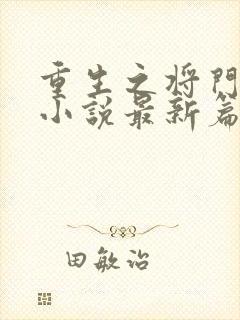 重生之将門
小説最新篇
田敏治